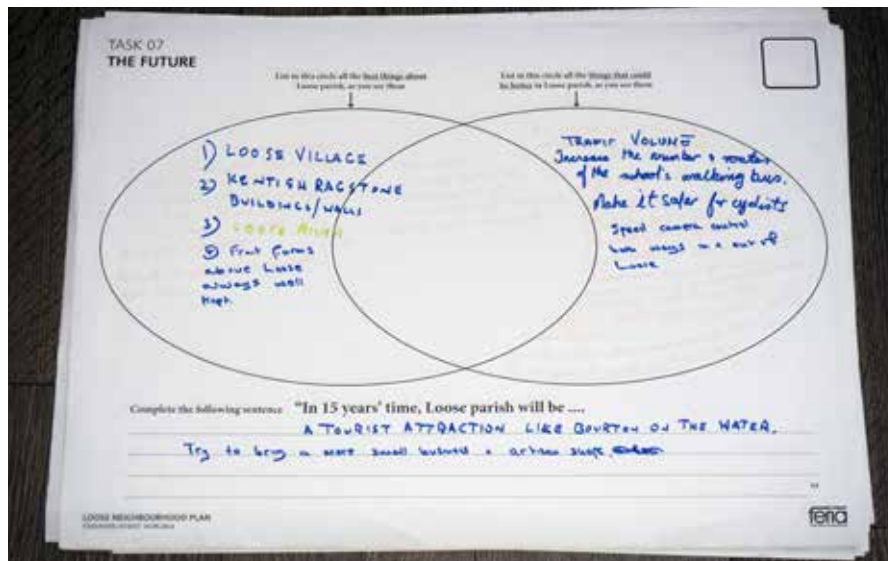 TASK 07
THE FUTURE
List in this circle all the best things about
Loose parish, as you see them
List in this circle all the things that could
be better in Loose parish, as you see them
1) LOOSE VILLAGE
2) KENTISH RAGSTONE
BUILDINGS/WALLS
3) LOOSE
Fruit farms
above Loose
always well
kept.
TRAFIC VOLUME
Increase the number & routes
of the school's walking bus.
Make it safer for cyclists
Speed camera control
both ways in & out of
Loose
Complete the following sentence "In 15 years' time, Loose parish will be ....
A TOURIST ATTRACTION LIKE BOURTON ON THE WATER.
Try to bring in more small business & artisan shops.
LOOSE NEIGHBOURHOOD PLAN
feria